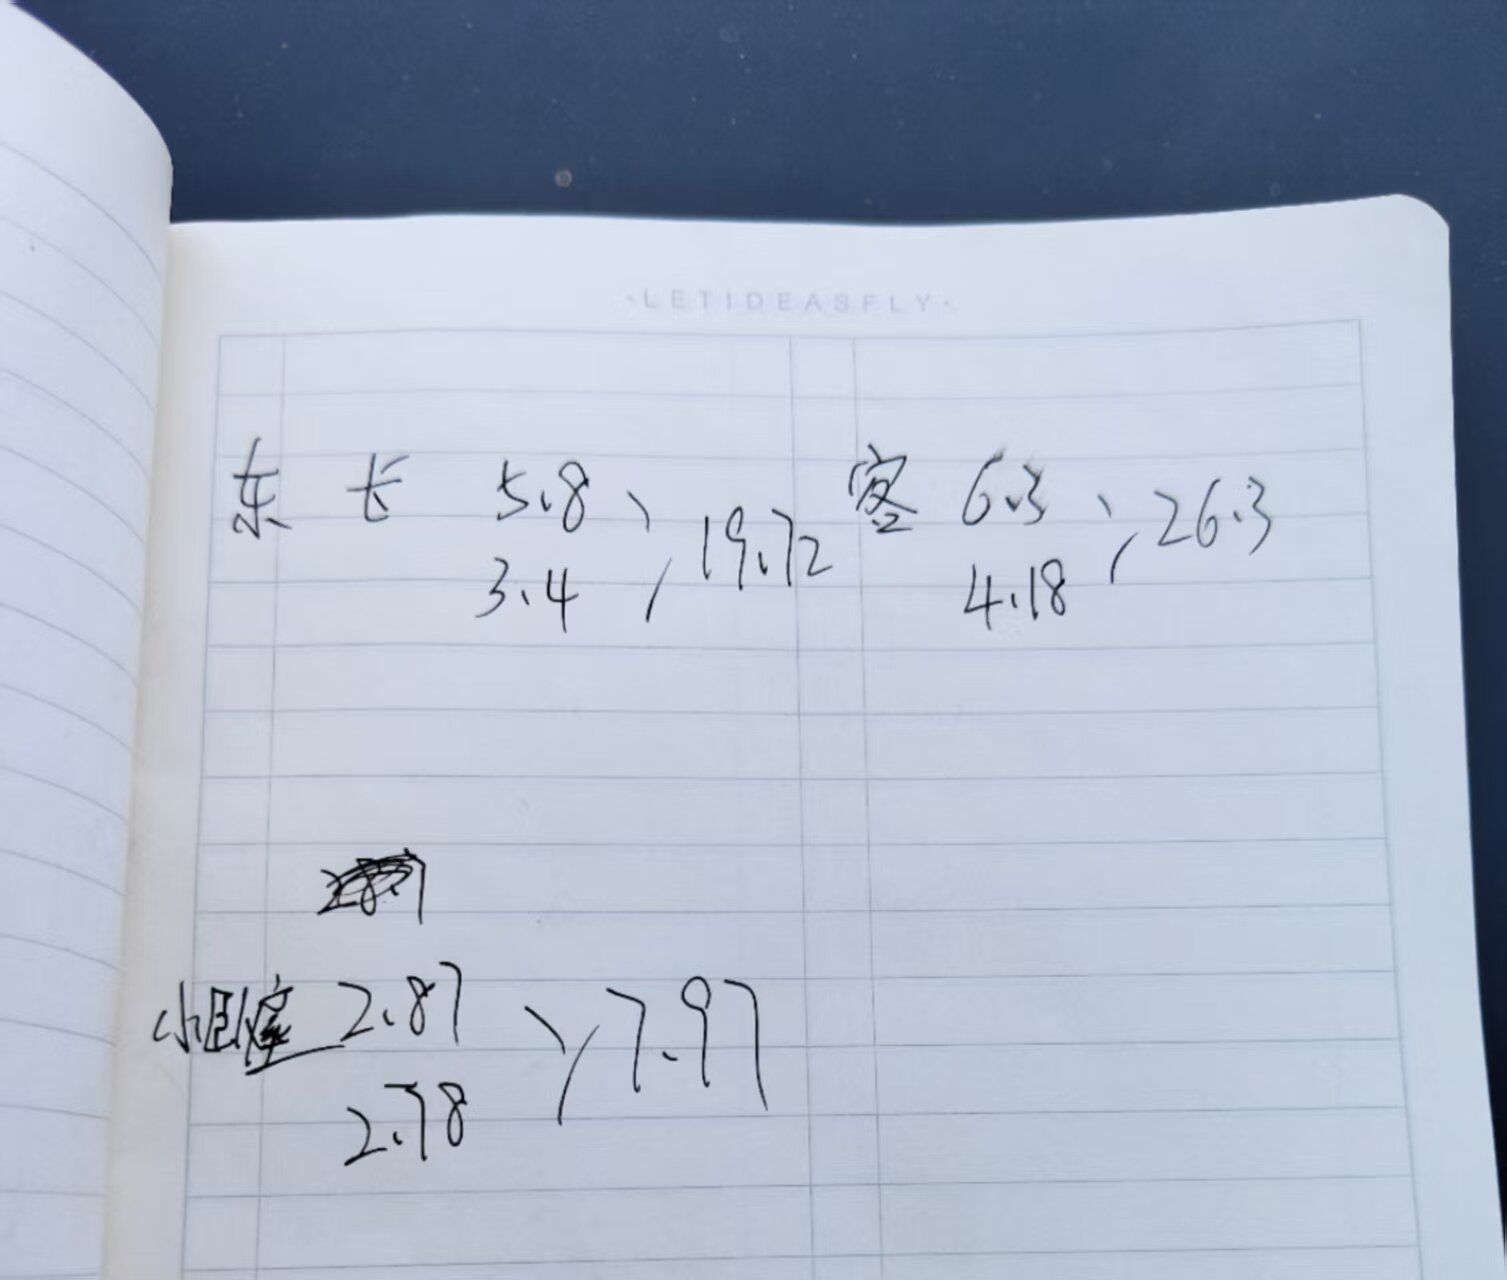 ·LETIDEASFLY·
东 长 5.8 19.72 客 6.3 26.3
3.4 4.18
小卧室 2.87 7.97
2.78